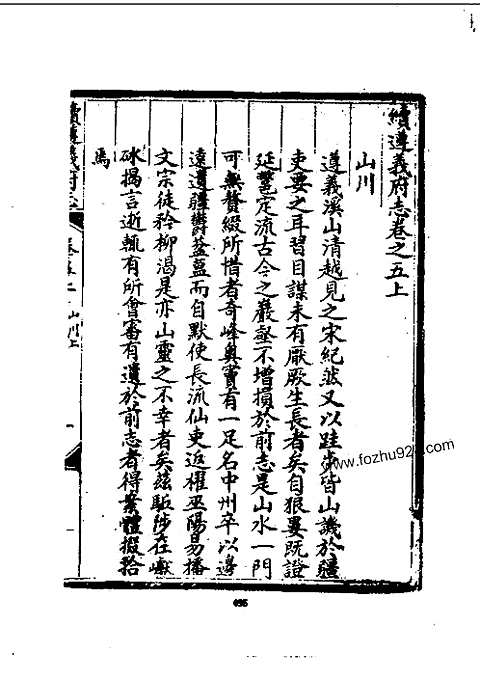 續遵義府志卷之五上
山川
遵義溪山清越見之宋紀然又以跬步皆山譏於疆
吏要之耳習目謀未有厭厥生長者矣自狠婁既證
延鄨定流古今之巖壑不增損於前志是山水一門
可無贅綴所惜者奇峰奧竇有一足名中州卒以邊
遠遺疆鬱葢藍而自默使長流仙吏返櫂巫陽易播
文宗徒矜柳渴是亦山靈之不幸者矣茲駈陟在
砅揭言逝輒有所會審有遺於前志者得案體掇拾
焉
續遵義府志
卷五上
山川上
www.fozhu92
495